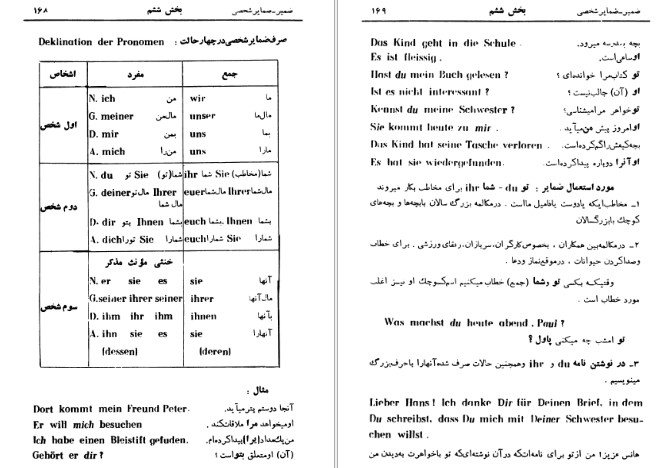 ضمیر-ضمایر شخصی
بخش ششم
۱۶۸
صرف ضمایر شخصی در چهار حالت : Deklination der Pronomen
اشخاص مفرد جمع
اول شخص
N. ich من wir ما
G. meiner مال‌من unser مال‌ما
D. mir بمن uns بما
A. mich من‌را uns مارا
دوم شخص
N. du تو Sie شما(تو) ihr شما Sie شما(مخاطب)
G. deiner مال‌تو Ihrer مال شما euer مال‌شما Ihrer مال‌شما
D. dir بتو Ihnen بشما euch بشما Ihnen بشما
A. dich تورا Sie شمارا euch شمارا Sie شمارا
سوم شخص
مذکر مؤنث خنثی
N. er sie es sie آنها
G. seiner ihrer seiner ihrer مال‌آنها
D. ihm ihr ihm ihnen بآنها
A. ihn sie es sie آنهارا
(dessen) (deren)
مثال :
Dort kommt mein Freund Peter. آنجا دوستم پتر میآید.
Er will mich besuchen او میخواهد مرا ملاقات‌کند.
Ich habe einen Bleistift gefuden. من‌یک‌مداد(را)پیدا‌کرده‌ام.
Gehört er dir ? (آن) او متعلق بتو است؟
ضمیر-ضمایر شخصی
بخش ششم
۱۶۹
Das Kind geht in die Schule. بچه بمدرسه میرود.
Es ist fleissig. او ساعی‌است.
Hast du mein Buch gelesen ? تو کتاب مرا خوانده‌ای؟
Ist es nicht interessant ? او (آن) جالب‌نیست؟
Kennst du meine Schwester ? تو خواهر مرا میشناسی؟
Sie kommt heute zu mir . او امروز پیش من میآید .
Das Kind hat seine Tasche verloren . بچه‌کیفش‌را‌گم‌کرده‌است.
Es hat sie wiedergefunden. او آنرا دوباره پیدا کرده‌است.
مورد استعمال ضمایر : تو du - شما ihr برای مخاطب بکار میروند
۱- مخاطب‌اینکه یا دوست یا فامیل ما است . در مکالمه بزرگ سالان با بچه‌ها و بچه‌های
کوچك با بزرگسالان
۲- در مکالمه‌بین همکاران ، بخصوص کارگران، سربازان، رفقای ورزشی . برای خطاب
و صدا کردن حیوانات ، در موقع نماز و دعا.
وقتیکه بکسی تو و شما (جمع) خطاب میکنیم اسم کوچك او نیز اغلب
مورد خطاب است .
Was machst du heute abend , Paul ?
تو امشب چه میکنی پاول ؟
۳- در نوشتن نامه du و ihr و همچنین حالات صرف شده آنها را با حرف بزرگ
مینویسیم .
Lieber Hans ! Ich danke Dir für Deinen Brief, in dem
Du schreibst, dass Du mich mit Deiner Schwester besu-
chen willst .
هانس عزیز! من از تو برای نامه‌ات‌که در آن نوشته‌ای‌که تو با خواهرت به‌دیدن من